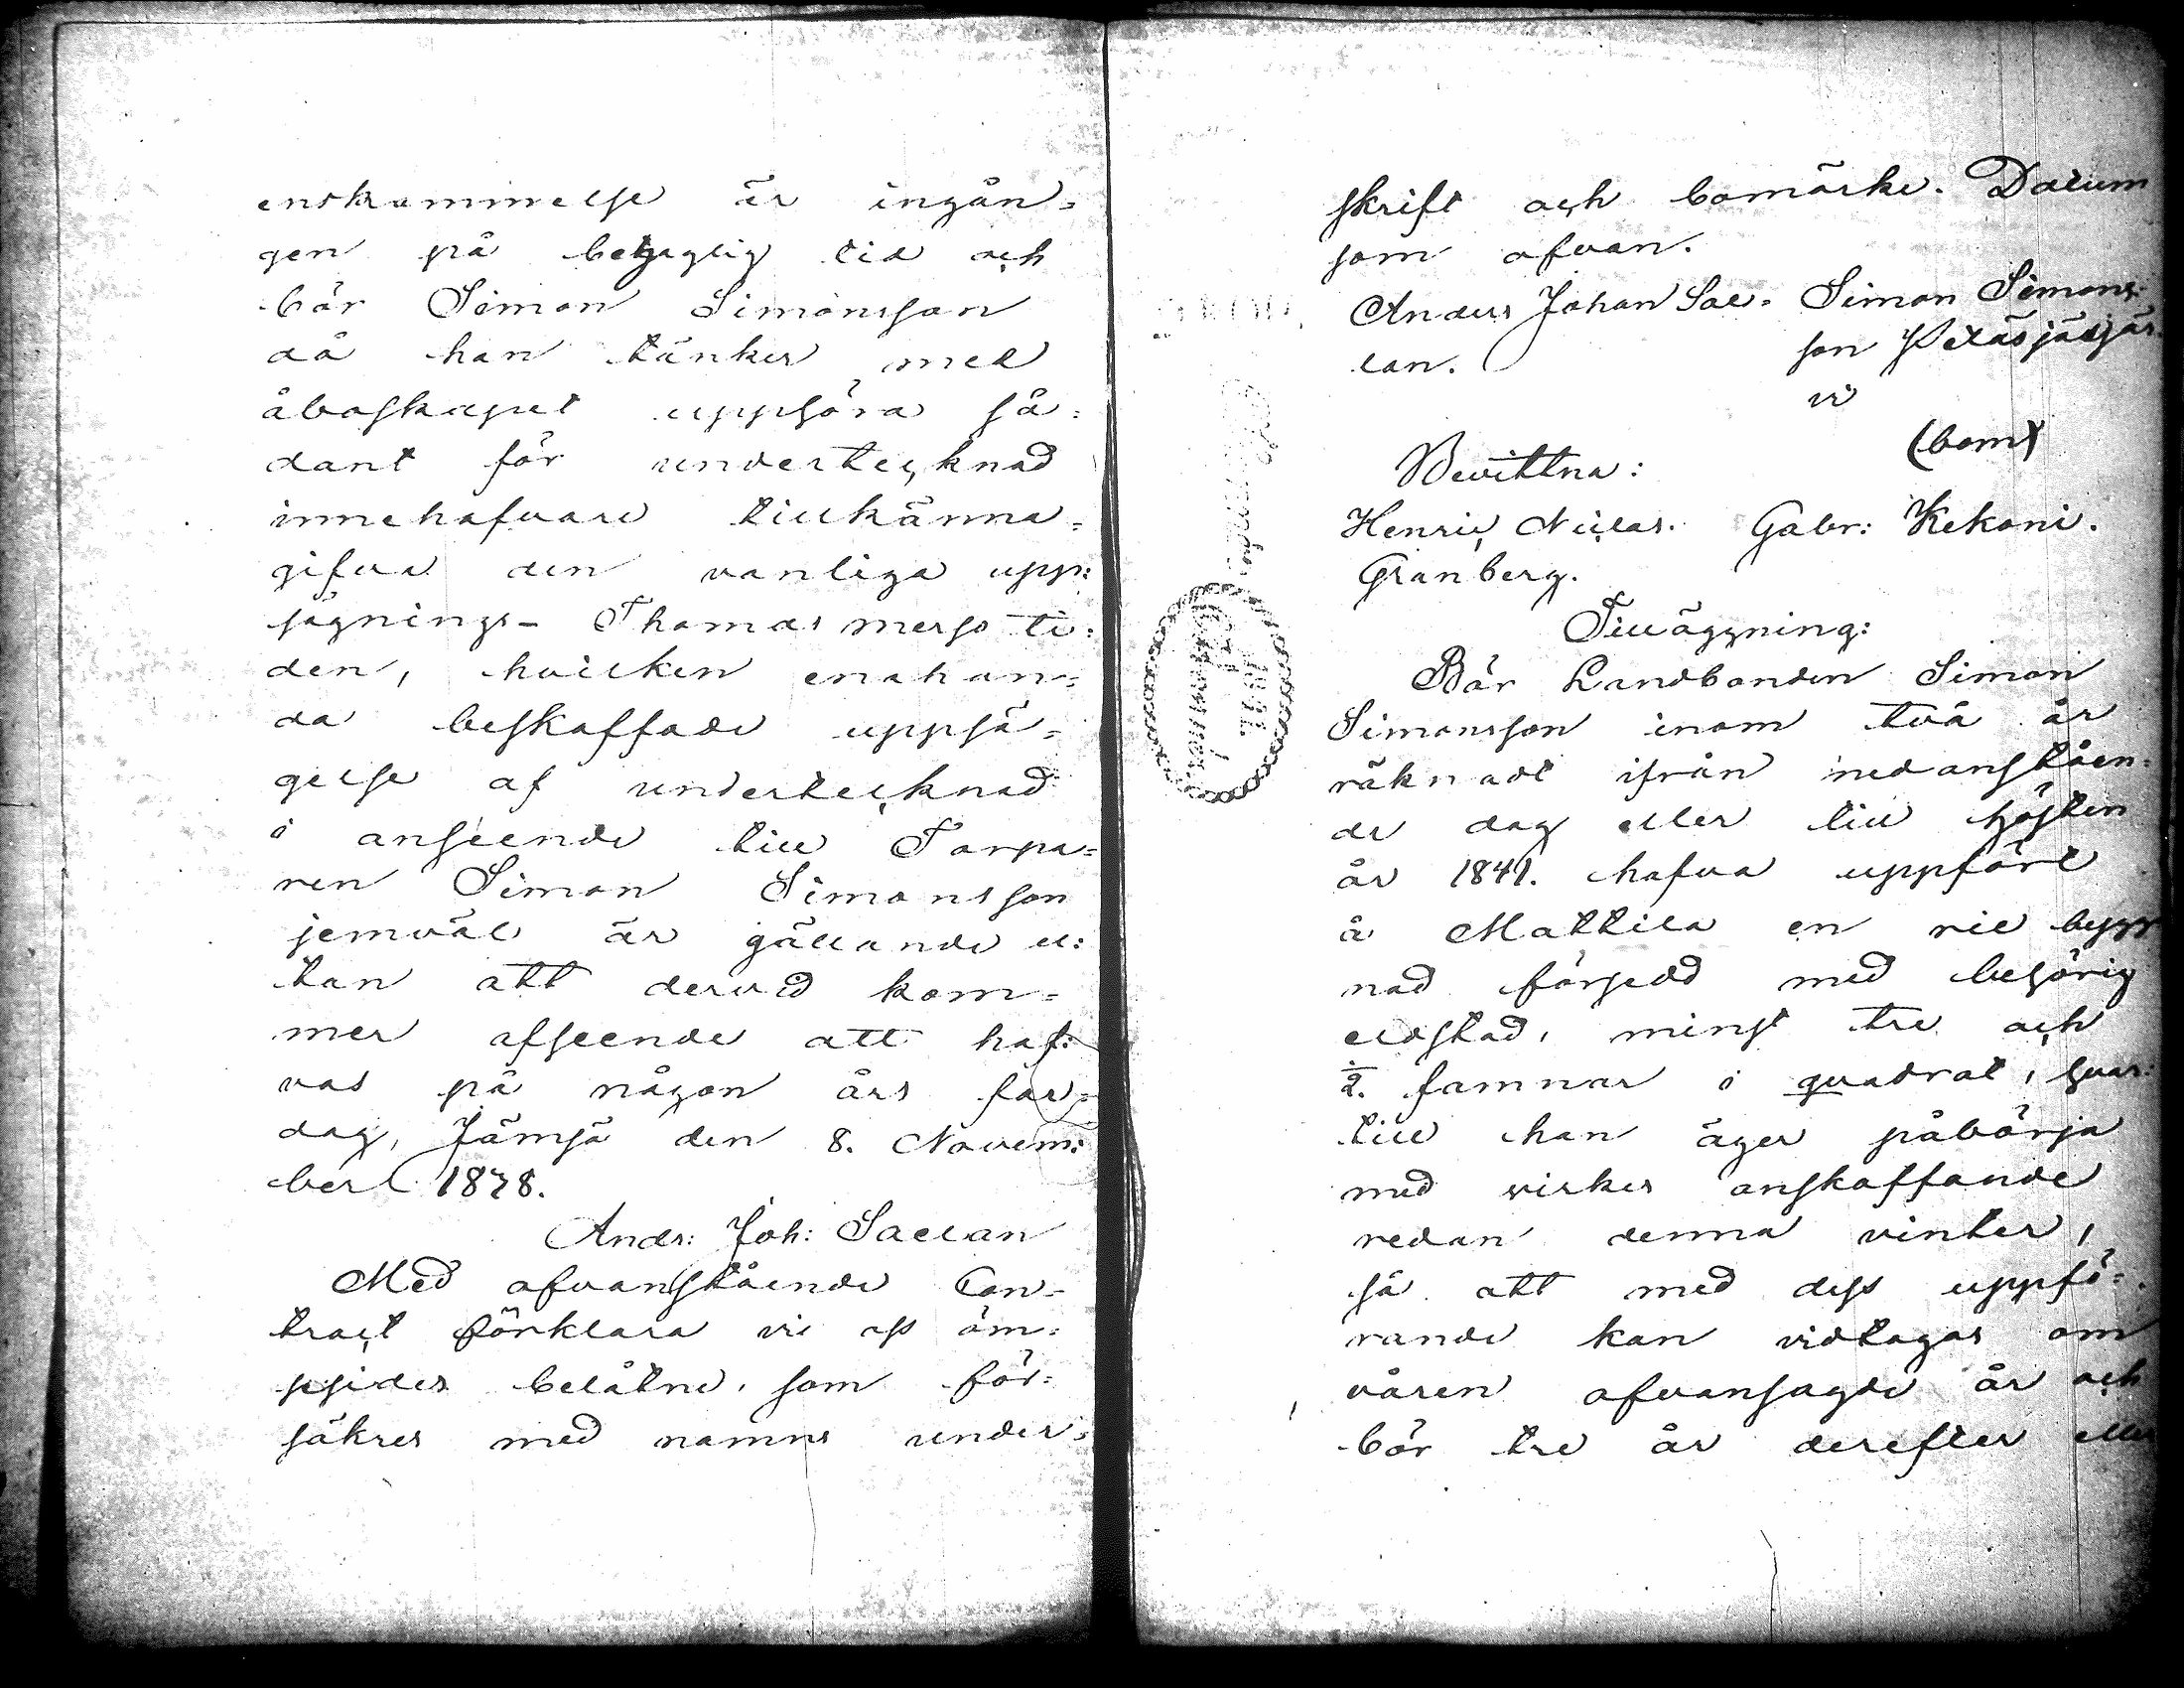 enskommelse är ingån=
gen på behaglig tid och
bör Simon Simonsson
då han tänker med
åboskapet upphöra så=
dant för undertecknad
innehafvare tillkänna=
gifva den vanliga upp=
sägnings- Thomas messo ti=
den, hvilken enahan=
da beskaffade uppsä=
gelse af undertecknad
i anseende till Torpa=
ren Simon Simonsson
jemväl är gällande u=
tan att dervid kom=
mer afseende att haf=
vas på någon års far=
dag, Jämsä den 8. Novem=
ber 1838.
Andr: Joh: Saelan
Med ofvanstående Con=
tract förklara vi oss öm=
ssides belåtne, som för=
säkres med namns under=
skrift och bomärke. Datum
som ofvan.
Anders Johan Sae= Simon Simons=
lan. son Petäsjäsjär=
vi
(bom)
Bevittna:
Henric Niclas. Gabr: Kekoni.
Granberg.
Tilläggning:
Bör Landbonden Simon
Simonsson inom två år
räknadt ifrån nedanståen=
de dag eller till hösten
år 1841. hafva uppfört
å Mattila en rie bygg
nad försedd med behörig
eldstad, minst tre och
1/2. famnar i quadrat, hvar=
till han äger påbörja
med virkes anskaffande
redan denna vinter,
så att med dess uppfö=
rande kan vidtagas om
våren ofvansagde år och
bör tre år derefter eller